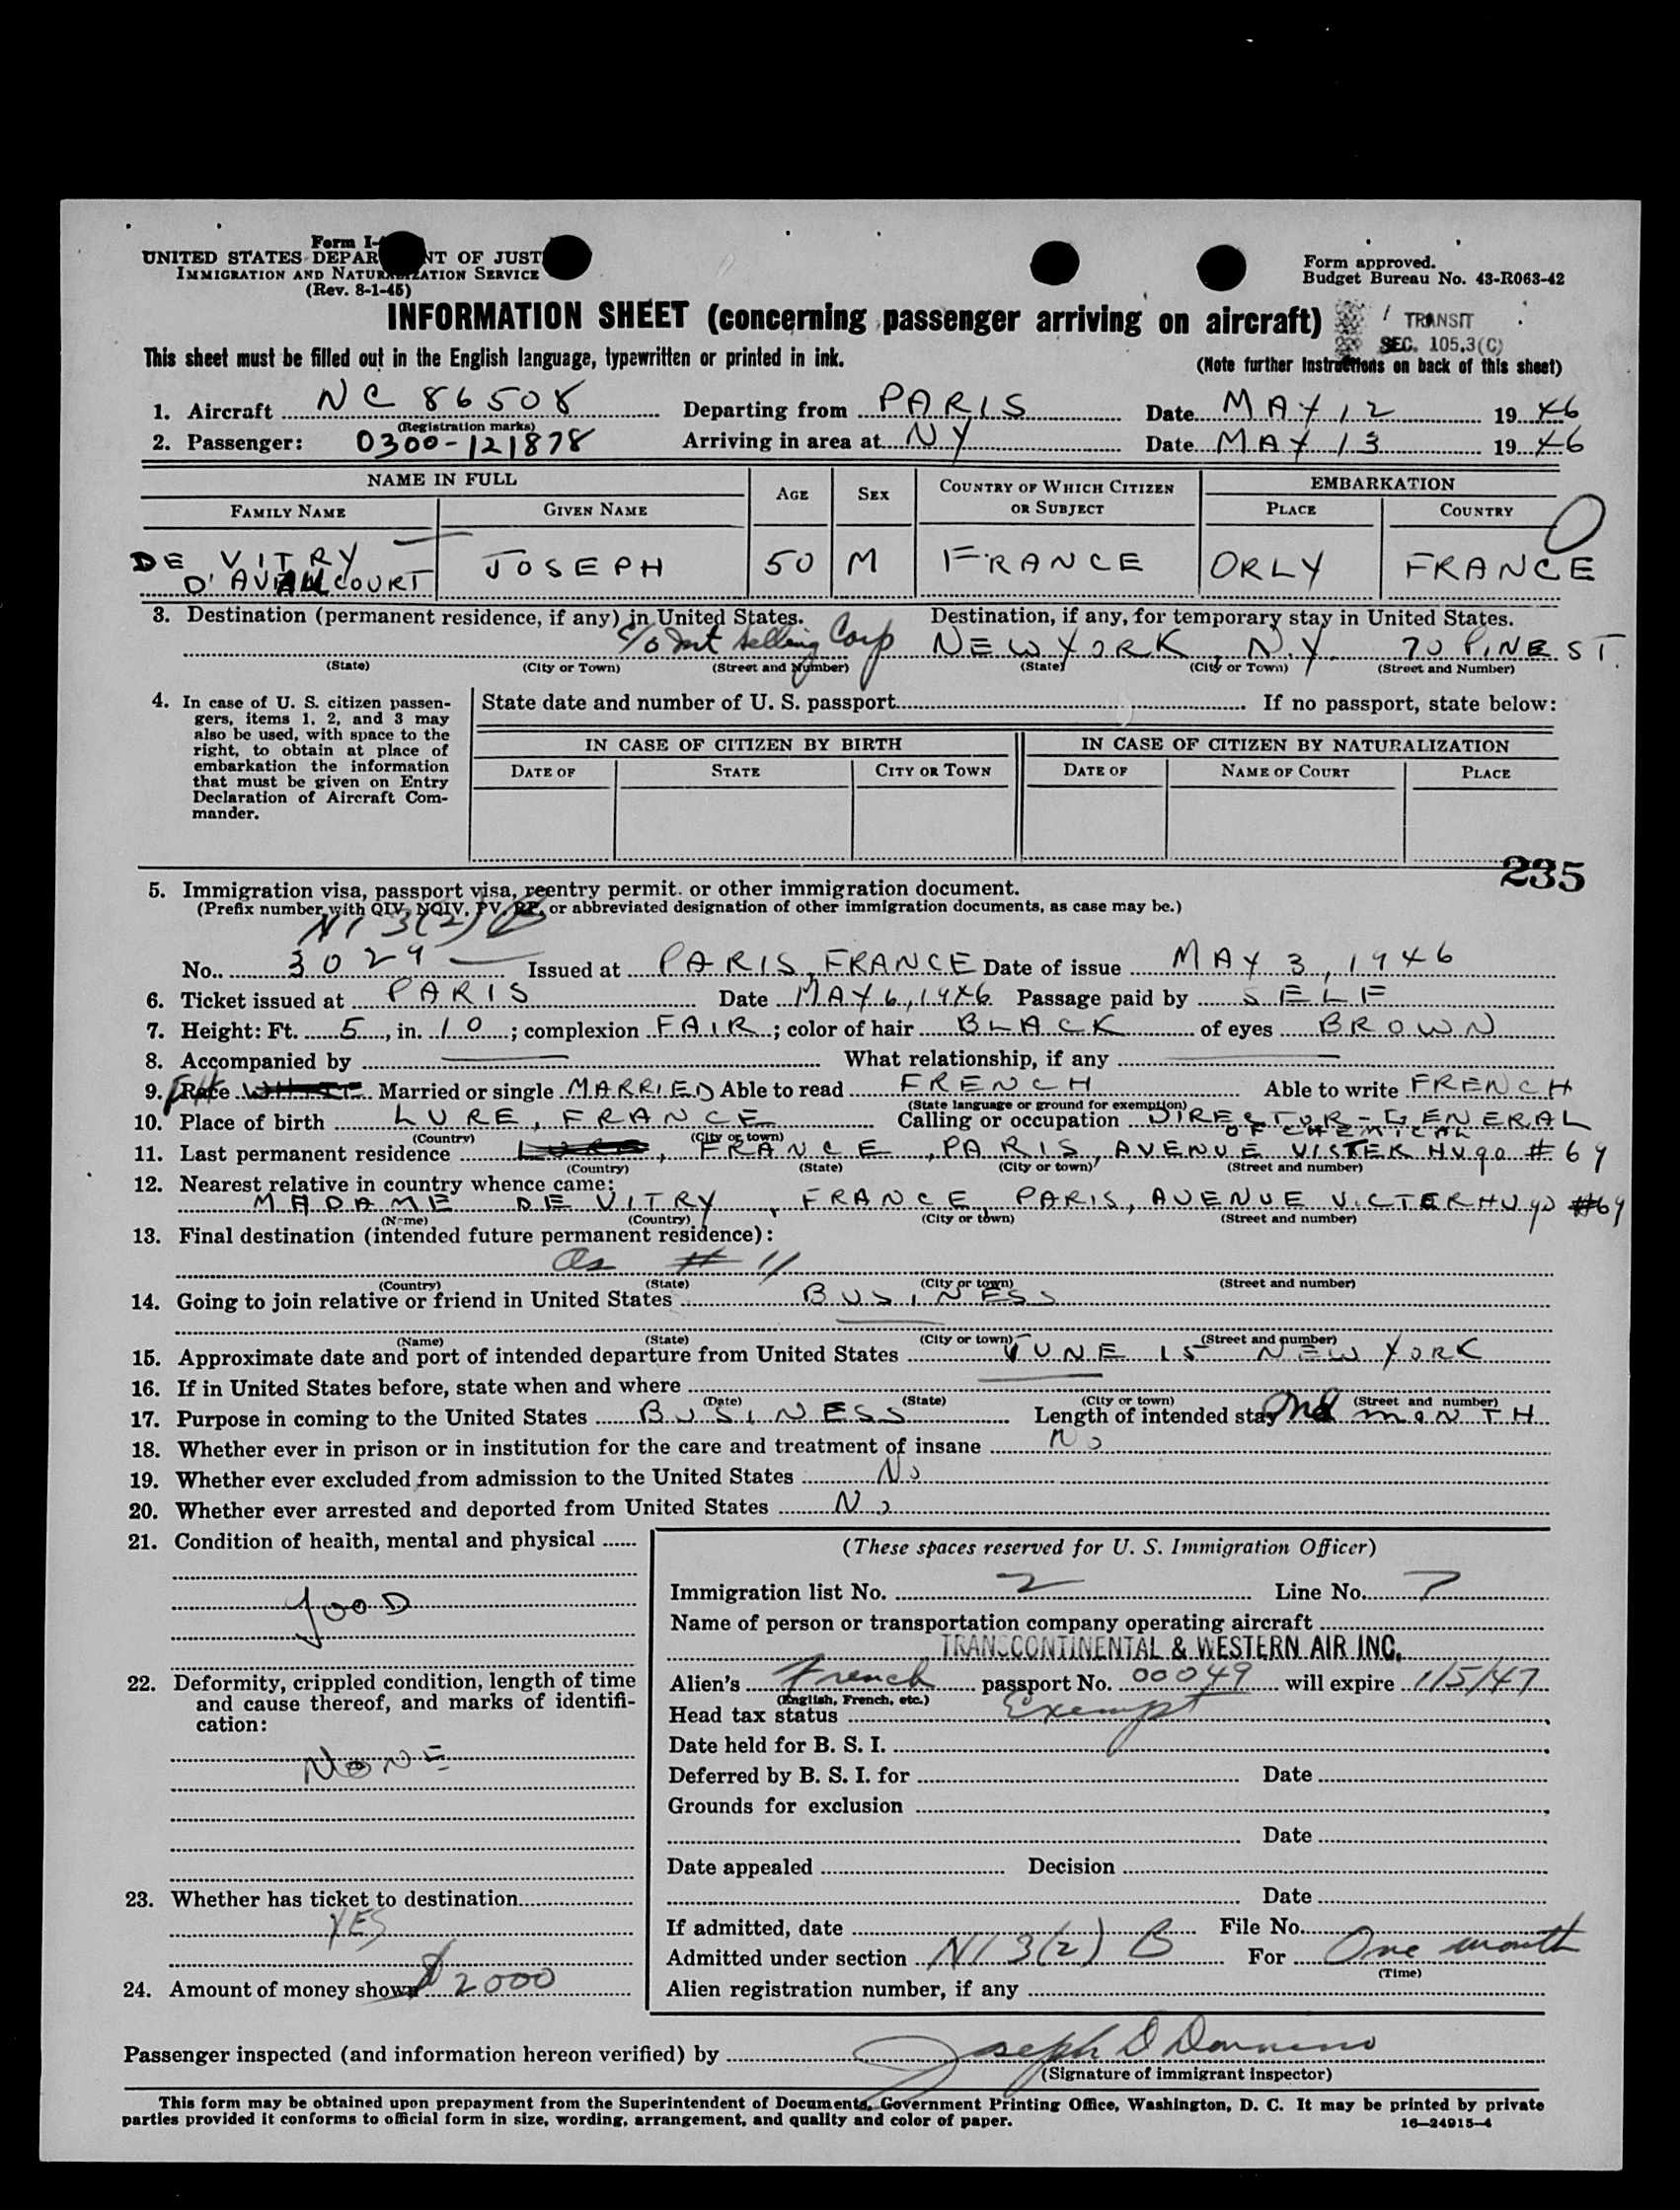 Form I-
UNITED STATES DEPAR NT OF JUST
IMMIGRATION AND NATURALIZATION SERVICE
(Rev. 8-1-45)
Form approved.
Budget Bureau No. 43-R063-42
INFORMATION SHEET (concerning passenger arriving on aircraft)
TRANSIT
SEC. 105.3(C)
This sheet must be filled out in the English language, typewritten or printed in ink.
(Note further Instructions on back of this sheet)
1. Aircraft NC 86508 Departing from PARIS Date MAY 12 1946
(Registration marks)
2. Passenger: 0300-121878 Arriving in area at NY Date MAY 13 1946
NAME IN FULL AGE SEX COUNTRY OF WHICH CITIZEN OR SUBJECT EMBARKATION
FAMILY NAME GIVEN NAME PLACE COUNTRY
DE VITRY D'AVAUCOURT JOSEPH 50 M FRANCE ORLY FRANCE
3. Destination (permanent residence, if any) in United States. Destination, if any, for temporary stay in United States.
c/o Int Selling Corp NEW YORK, N.Y. 70 PINE ST.
(State) (City or Town) (Street and Number) (State) (City or Town) (Street and Number)
4. In case of U. S. citizen passengers, items 1, 2, and 3 may also be used, with space to the right, to obtain at place of embarkation the information that must be given on Entry Declaration of Aircraft Commander.
State date and number of U. S. passport If no passport, state below:
IN CASE OF CITIZEN BY BIRTH IN CASE OF CITIZEN BY NATURALIZATION
DATE OF STATE CITY OR TOWN DATE OF NAME OF COURT PLACE
235
5. Immigration visa, passport visa, reentry permit. or other immigration document.
(Prefix number with QIV, NQIV, PV, RP, or abbreviated designation of other immigration documents, as case may be.)
NI 3(2) B
No. 3029 Issued at PARIS, FRANCE Date of issue MAY 3, 1946
6. Ticket issued at PARIS Date MAY 6, 1946 Passage paid by SELF
7. Height: Ft. 5, in. 10; complexion FAIR; color of hair BLACK of eyes BROWN
8. Accompanied by What relationship, if any
9. Race WHITE Married or single MARRIED Able to read FRENCH Able to write FRENCH
(State language or ground for exemption)
10. Place of birth LURE, FRANCE Calling or occupation DIRECTOR-GENERAL
(Country) (City or town) OF CHEMICAL
11. Last permanent residence LURE, FRANCE, PARIS, AVENUE VISTEK HUgo #69
(Country) (State) (City or town) (Street and number)
12. Nearest relative in country whence came:
MADAME DE VITRY, FRANCE PARIS, AVENUE VICTERHUgo #69
(Name) (Country) (City or town) (Street and number)
13. Final destination (intended future permanent residence):
as # 11
(Country) (State) (City or town) (Street and number)
14. Going to join relative or friend in United States BUSINESS
(Name) (State) (City or town) (Street and number)
15. Approximate date and port of intended departure from United States JUNE 15 NEW YORK
16. If in United States before, state when and where
(Date) (State) (City or town) (Street and number)
17. Purpose in coming to the United States BUSINESS Length of intended stay One MONTH
18. Whether ever in prison or in institution for the care and treatment of insane No
19. Whether ever excluded from admission to the United States No
20. Whether ever arrested and deported from United States No
21. Condition of health, mental and physical
gooD
22. Deformity, crippled condition, length of time and cause thereof, and marks of identification:
NONE
23. Whether has ticket to destination
YES
24. Amount of money shown $2000
(These spaces reserved for U. S. Immigration Officer)
Immigration list No. 2 Line No. 7
Name of person or transportation company operating aircraft
TRANSCONTINENTAL & WESTERN AIR INC.
Alien's French passport No. 00049 will expire 1/5/47
(English, French, etc.)
Head tax status Exempt
Date held for B. S. I.
Deferred by B. S. I. for Date
Grounds for exclusion
Date
Date appealed Decision
Date
If admitted, date File No.
Admitted under section NI 3(2) B For One month
(Time)
Alien registration number, if any
Passenger inspected (and information hereon verified) by Joseph D
(Signature of immigrant inspector)
This form may be obtained upon prepayment from the Superintendent of Documents, Government Printing Office, Washington, D. C. It may be printed by private
parties provided it conforms to official form in size, wording, arrangement, and quality and color of paper.
16—24915-4